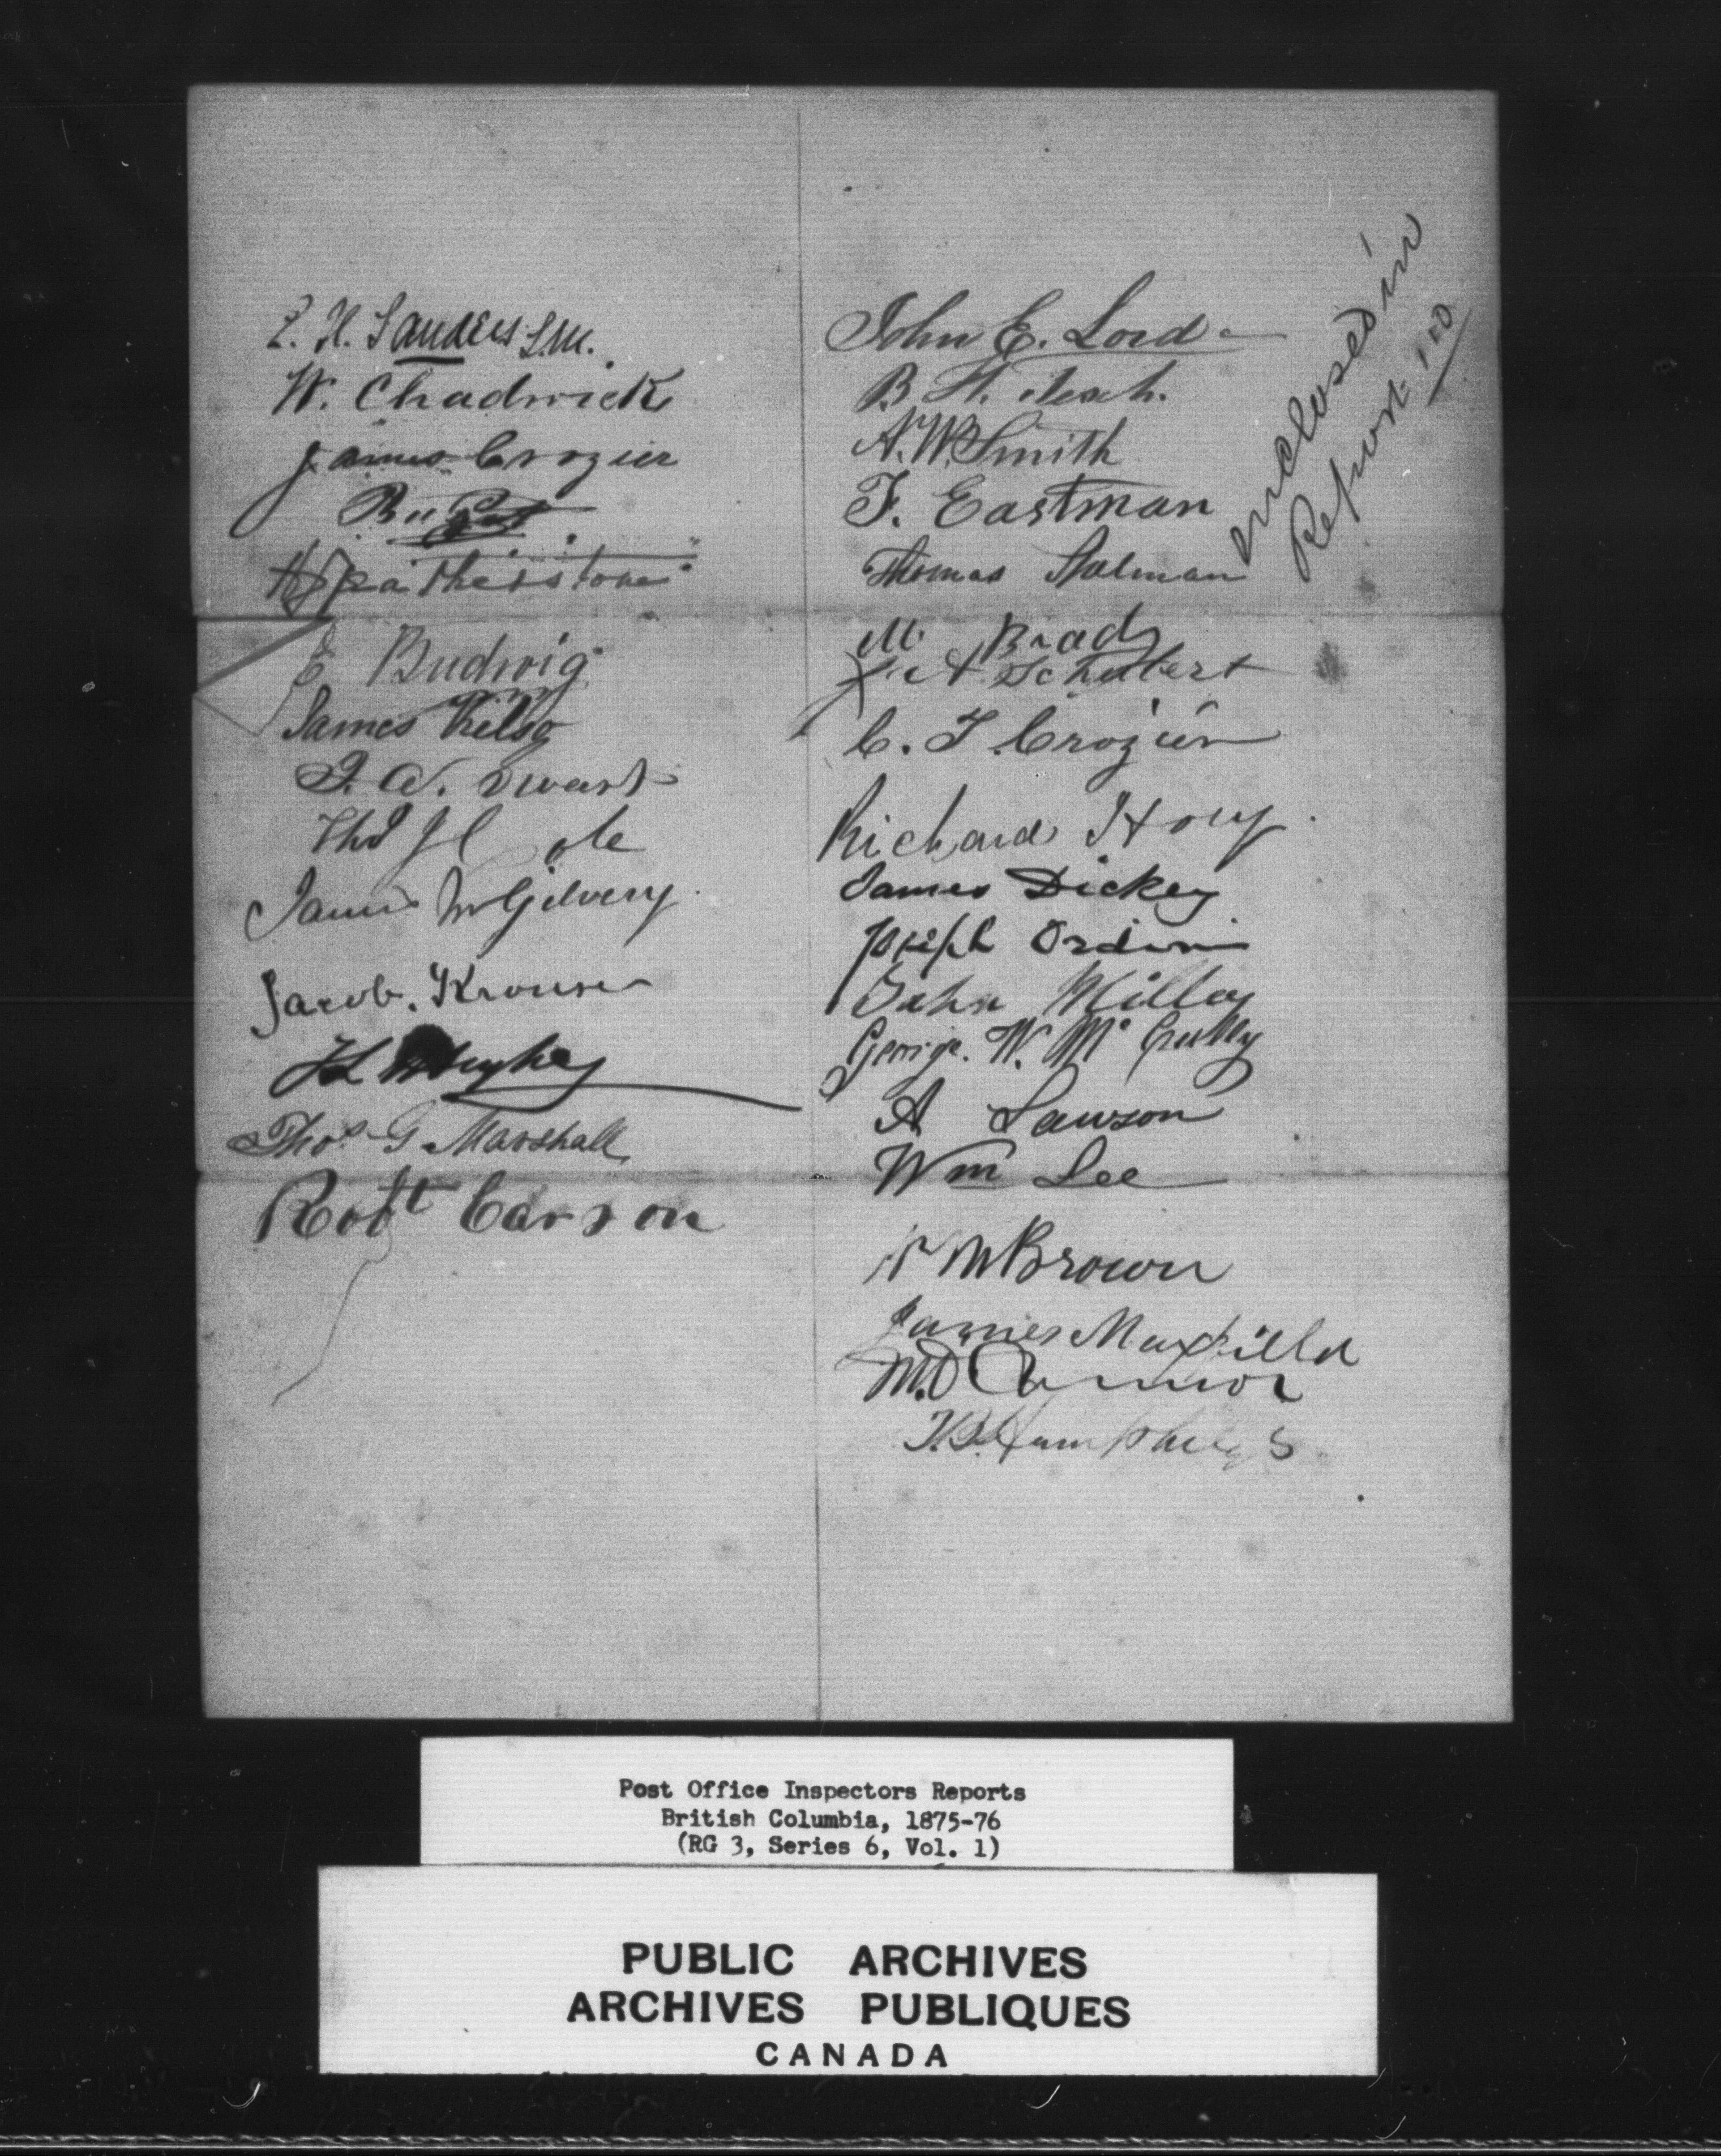 E. H. Sanders S.M.
W. Chadwick
James Crozier
E Budwig
James Kelso
J. A. Swart
Thos
James McGilvery
Jacob. Krouse
Hughes
Thos G Marshall
Robt Carson
John E. Lord
B. H.
A. W. Smith
F. Eastman
Thomas
M. Brady
A Schubert
C. T. Crozier
Richard Hoey
James Dickey
Joseph
John Killoy
George. W. Mc
A Lawson
Wm Lee
M Brown
James
M.
T.B. Humphreys
enclosed in
Report
Post Office Inspectors Reports
British Columbia, 1875-76
(RG 3, Series 6, Vol. 1)
PUBLIC ARCHIVES
ARCHIVES PUBLIQUES
CANADA